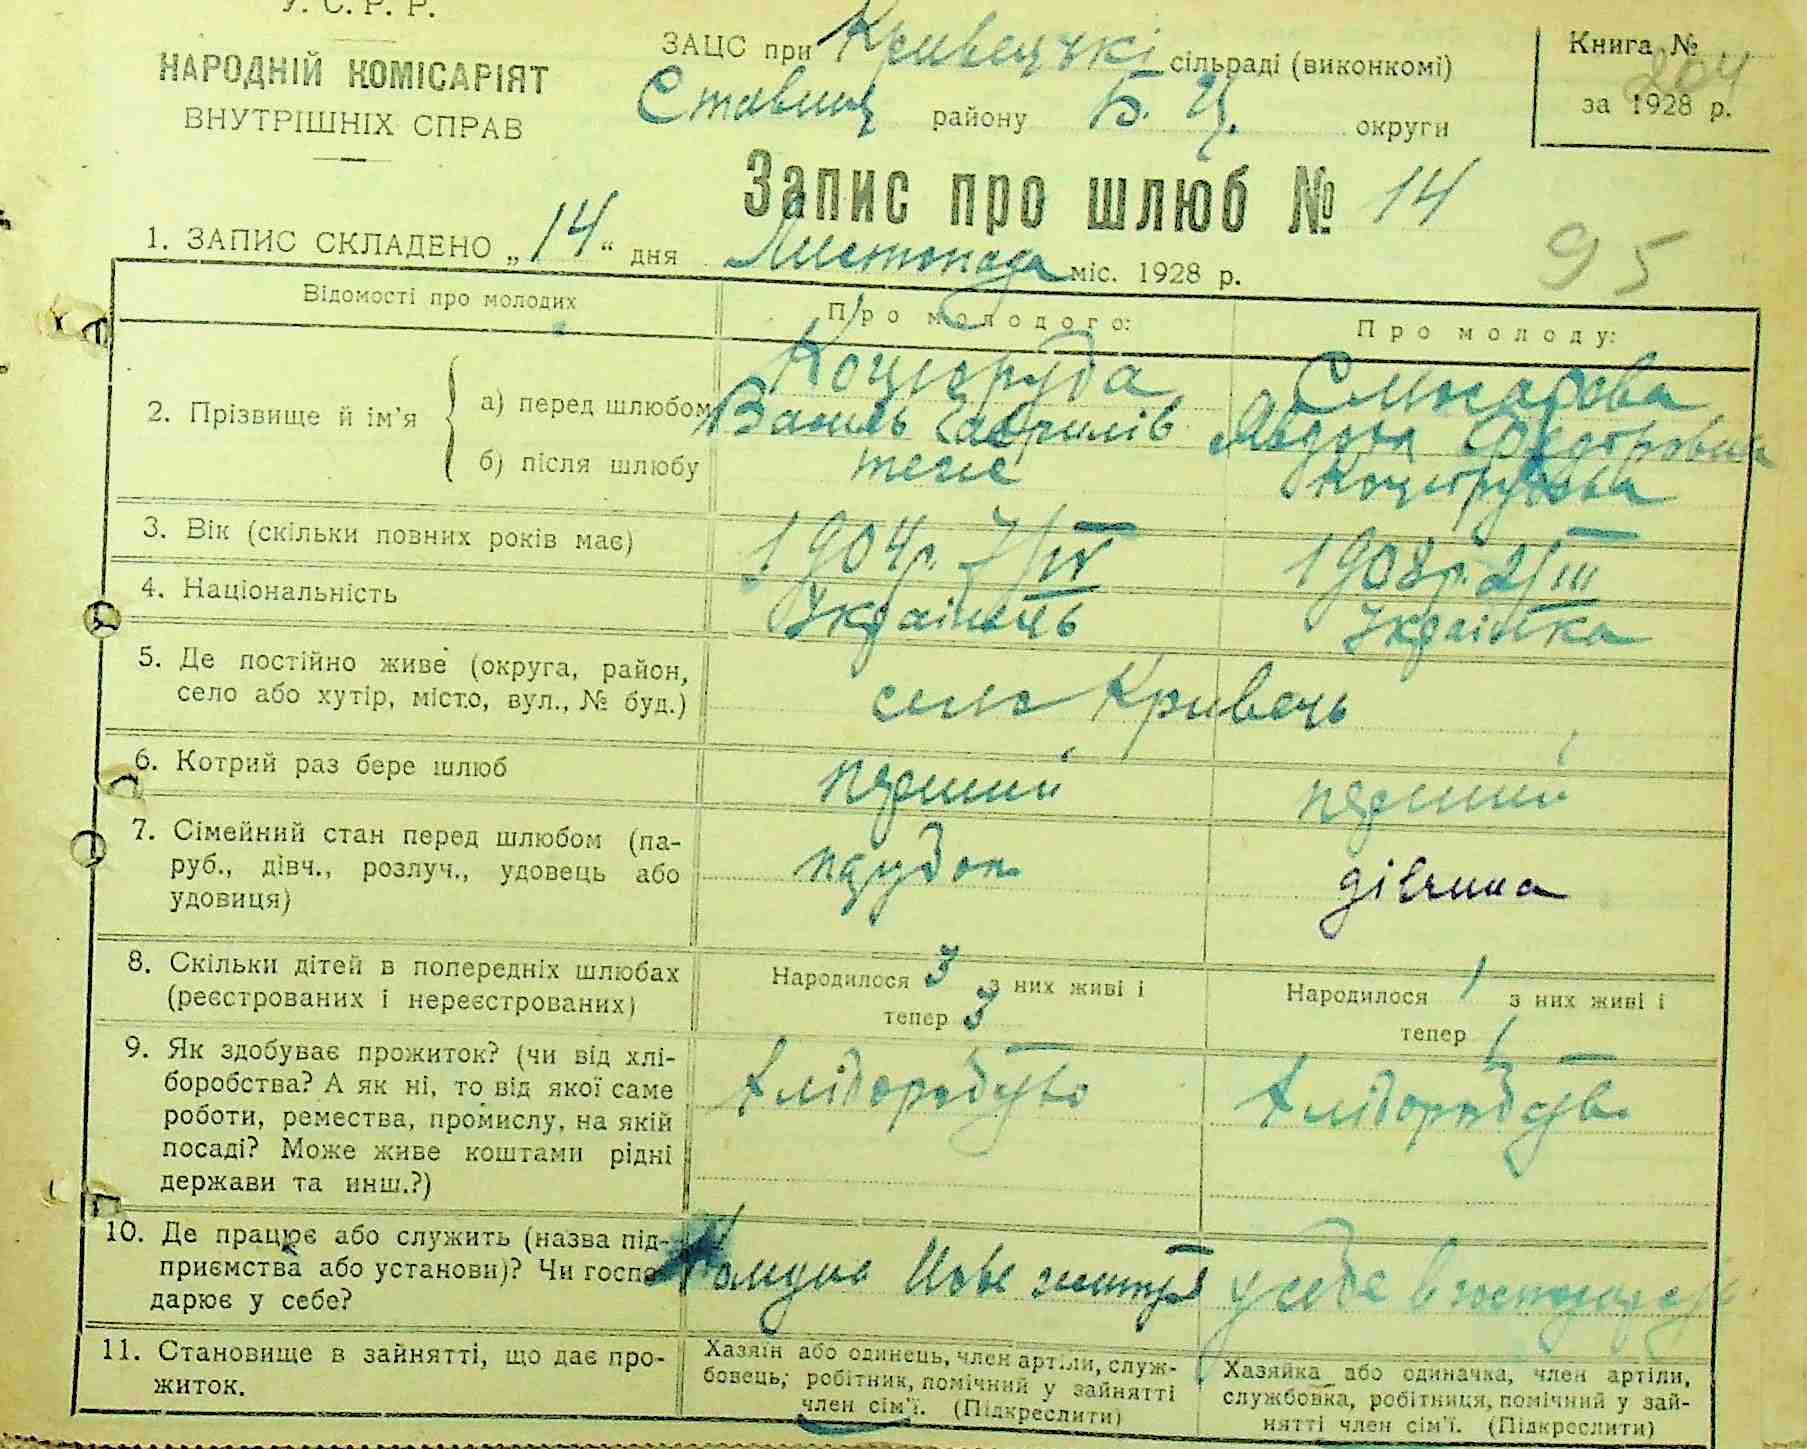 У. С. Р. Р.
НАРОДНІЙ КОМІСАРІЯТ
ВНУТРІШНІХ СПРАВ
ЗАЦС при Кривецькі сільраді (виконкомі)
Ставищ району Б. Ц. округи
Книга № 204
за 1928 р.
Запис про шлюб № 14
95
1. ЗАПИС СКЛАДЕНО „14“ дня Листопада міс. 1928 р.
Відомості про молодих
Про молодого:
Про молоду:
2. Прізвище й ім'я
а) перед шлюбом
Коцюруба
Василь Гаврилів
Слюсарова
Явдоха Федоровна
б) після шлюбу
теж
Коцюрубова
3. Вік (скільки повних років має)
1904р. 7/IV
1908р. 2/III
4. Національність
Українець
Українка
5. Де постійно живе (округа, район,
село або хутір, місто, вул., № буд.)
село Кривець
6. Котрий раз бере шлюб
перший
перший
7. Сімейний стан перед шлюбом (па-
руб., дівч., розлуч., удовець або
удовиця)
парубок
дівчина
8. Скільки дітей в попередніх шлюбах
(реєстрованих і нереєстрованих)
Народилося 3 з них живі і
тепер 3
Народилося 1 з них живі і
тепер 1
9. Як здобуває прожиток? (чи від хлі-
боробства? А як ні, то від якої саме
роботи, ремества, промислу, на якій
посаді? Може живе коштами рідні
держави та инш.?)
Хліборобство
Хліборобство
10. Де працює або служить (назва під-
приємства або установи)? Чи госпо-
дарює у себе?
Комуна Нове життя
у себе в господарстві
11. Становище в зайнятті, що дає про-
житок.
Хазяїн або одинець, член артіли, служ-
бовець, робітник, помічний у зайнятті
член сім'ї. (Підкреслити)
Хазяйка або одиначка, член артіли,
службовка, робітниця, помічний у зай-
нятті член сім'ї. (Підкреслити)